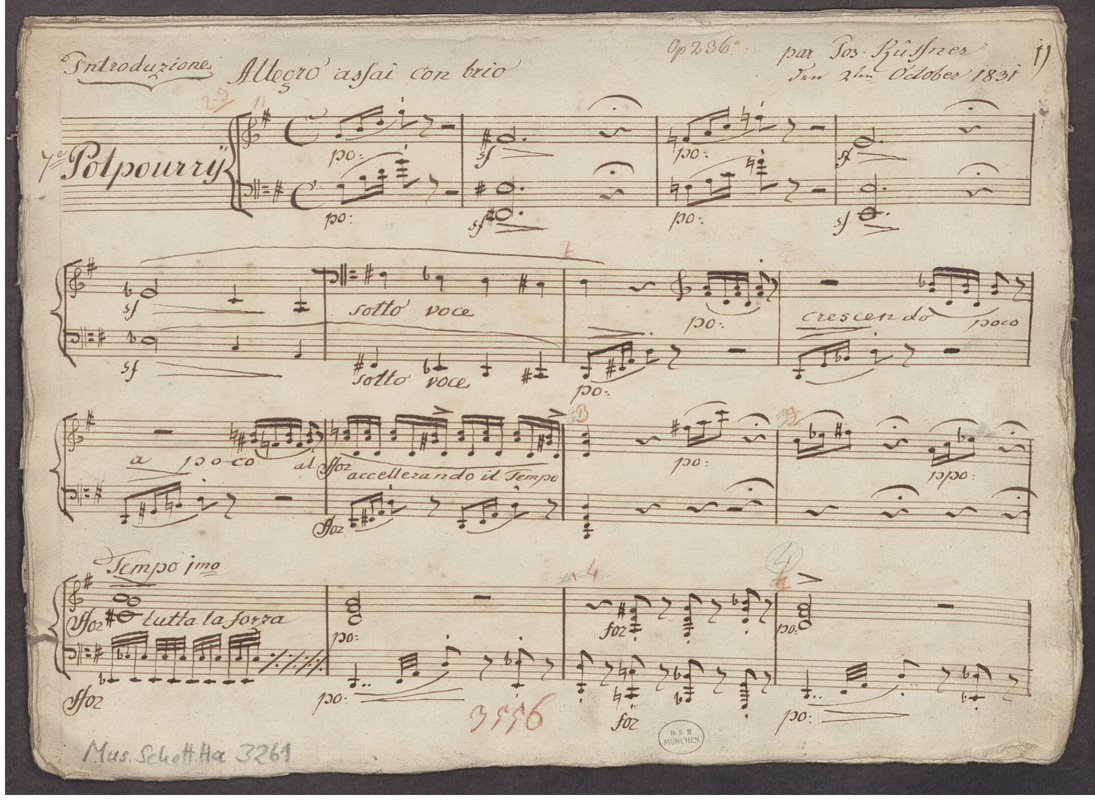 Op 236.
par Jos. Küffner
1)
Introduzione
Allegro assai con brio
den 2ten October 1831
7e Potpourry
po: sf po: sf
po: sf po: sf
sf sotto voce po: crescendo poco
sf sotto voce po:
a poco al ffor accellerando il Tempo po: ppo:
ffor
3
Tempo 1mo
4
ffor tutta la forza po: for po:
ffor po: for po:
3556
BSB
MÜNCHEN
Mus. Schott. Ha 3261